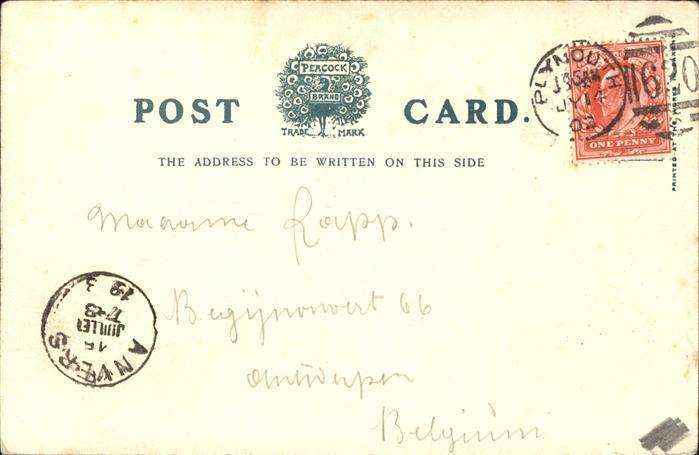 PEACOCK
BRAND
TRADE MARK
POST CARD.
THE ADDRESS TO BE WRITTEN ON THIS SIDE
PLYMOUTH
JY 1
03
620
ONE PENNY
PRINTED AT THE WORKS IN SAXONY
Madame Rapp.
Begijnenvest 66
Antwerpen
Belgium
ANVERS
15
JUILLET
19 3